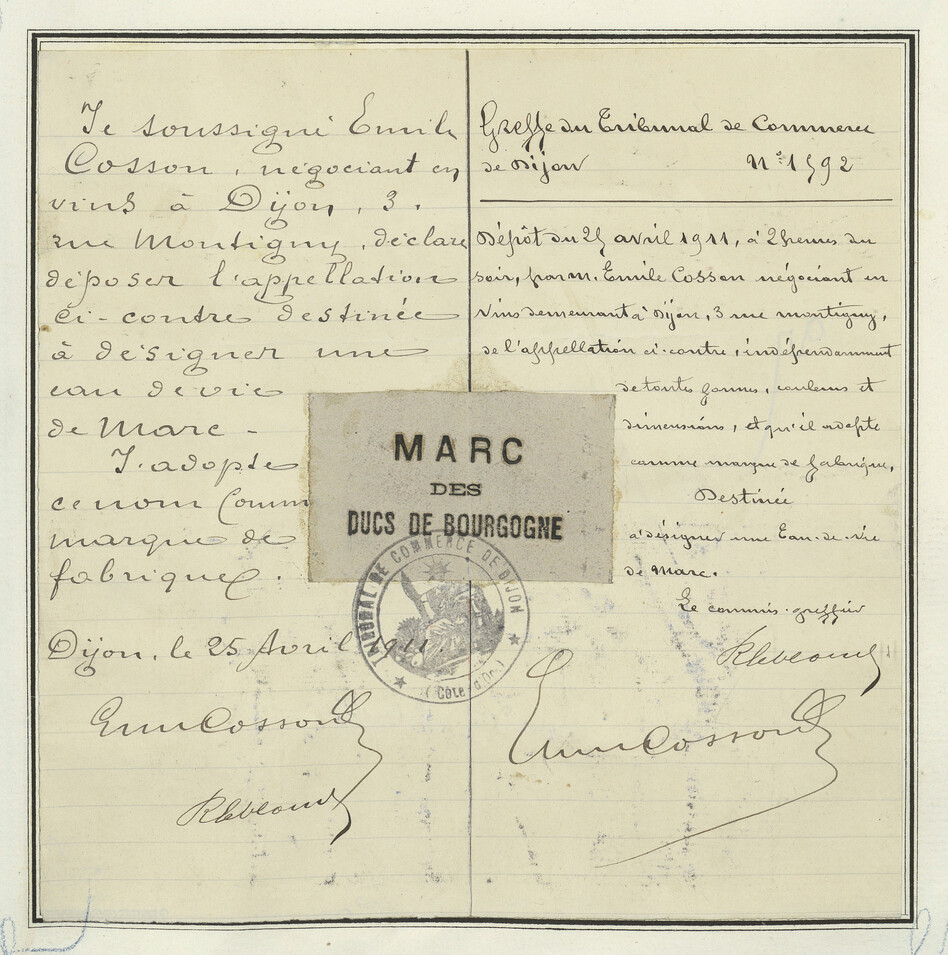 Je soussigné Emile
Cosson, négociant en
vins à Dijon, 3,
rue Montigny, déclare
déposer l'appellation
ci-contre destinée
à désigner une
eau de vie
de Marc -
J'adopte
ce nom comme
marque de
fabrique.
Dijon, le 25 Avril 1911.
Emile Cosson
Greffe du Tribunal de Commerce
de Dijon N° 1592
Dépôt du 25 avril 1911, à 2 heures du
soir, par M. Emile Cosson négociant en
vins demeurant à Dijon, 3 rue Montigny,
de l'appellation ci-contre, indépendamment
de toutes formes, couleurs et
dimensions, et qu'il adopte
comme marque de fabrique,
Destinée
à désigner une Eau-de-vie
de Marc.
Le commis-greffier
Emile Cosson
MARC
DES
DUCS DE BOURGOGNE
TRIBUNAL DE COMMERCE DE DIJON
(Côte d'Or)